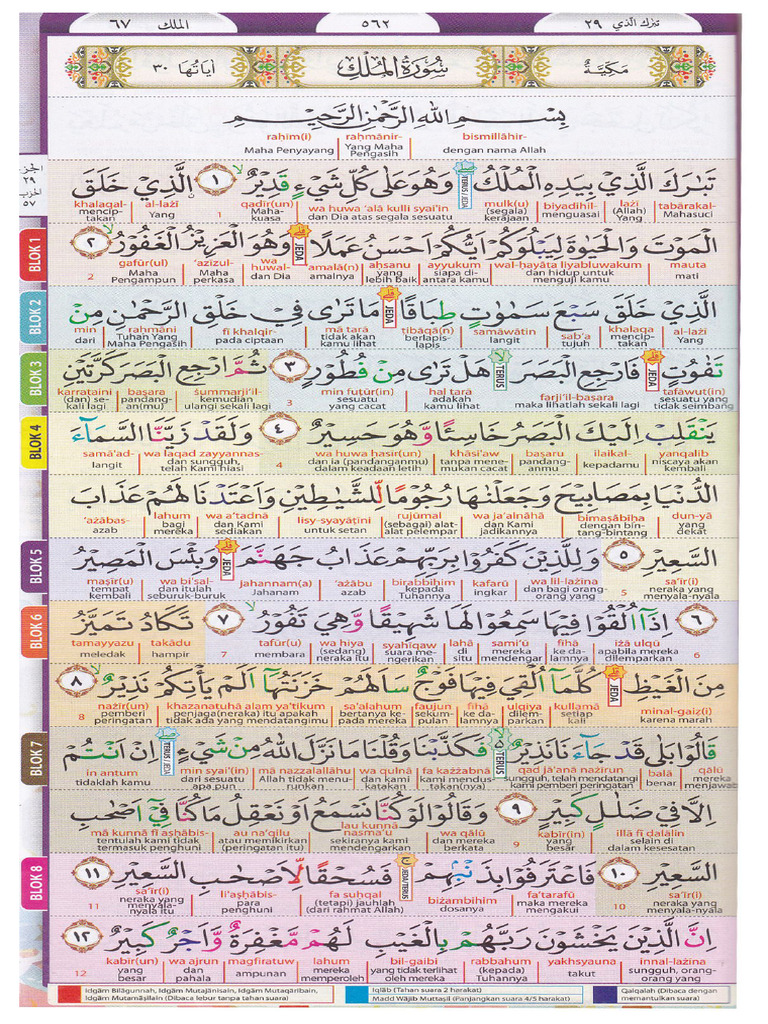 تبرك الذي ٢٩
٥٦٢
الملك ٦٧
مَكِّيَّةٌ
سُورَةُ الْمُلْكِ
اٰيَاتُهَا ٣٠
الجزء ٢٩ الحزب ٥٧
بِسْمِ اللّٰهِ الرَّحْمٰنِ الرَّحِيْمِ
bismillāhir- raḥmānir- raḥīm(i)
dengan nama Allah Yang Maha Pengasih Maha Penyayang
تَبَارَكَ الَّذِيْ بِيَدِهِ الْمُلْكُ وَهُوَ عَلٰى كُلِّ شَيْءٍ قَدِيْرٌ ۙ ١ الَّذِيْ خَلَقَ
tabārakal- lażī biyadihil- mulk(u) wa huwa 'alā kulli syai'in qadīr(un) 1 al-lażī khalaqal-
Mahasuci (Allah) Yang menguasai (segala) kerajaan dan Dia atas segala sesuatu Mahakuasa Yang menciptakan
BLOK 1
الْمَوْتَ وَالْحَيٰوةَ لِيَبْلُوَكُمْ اَيُّكُمْ اَحْسَنُ عَمَلًا وَهُوَ الْعَزِيْزُ الْغَفُوْرُ ۙ ٢
mauta wal-ḥayāta liyabluwakum ayyukum aḥsanu amalā(n) wa huwal- 'azīzul- gafūr(ul) 2
mati dan hidup untuk menguji kamu siapa di antara kamu yang lebih baik amalnya dan Dia Maha perkasa Maha Pengampun
BLOK 2
الَّذِيْ خَلَقَ سَبْعَ سَمٰوٰتٍ طِبَاقًا مَا تَرٰى فِيْ خَلْقِ الرَّحْمٰنِ مِنْ
al-lażī khalaqa sab'a samāwātin ṭibāqā(n) mā tarā fī khalqir- raḥmāni min
Yang menciptakan tujuh langit berlapis-lapis tidak akan kamu lihat pada ciptaan Tuhan Yang Maha Pengasih dari
BLOK 3
تَفٰوُتٍ فَارْجِعِ الْبَصَرَ هَلْ تَرٰى مِنْ فُطُوْرٍ ٣ ثُمَّ ارْجِعِ الْبَصَرَ كَرَّتَيْنِ
tafāwut(in) farji'il-baṣara hal tarā min fuṭūr(in) 3 ṡummarji'il- baṣara karrataini
sesuatu yang tidak seimbang maka lihatlah sekali lagi adakah kamu lihat sesuatu yang cacat kemudian ulangi sekali lagi pandangan(mu) (dan) sekali lagi
BLOK 4
يَنْقَلِبْ اِلَيْكَ الْبَصَرُ خَاسِئًا وَّهُوَ حَسِيْرٌ ٤ وَلَقَدْ زَيَّنَّا السَّمَاۤءَ
yanqalib ilaikal- baṣaru khāsi'aw wa huwa ḥasīr(un) 4 wa laqad zayyannas- samā'ad-
niscaya akan kembali kepadamu pandanganmu tanpa menemukan cacat dan ia (pandanganmu) dalam keadaan letih dan sungguh, telah Kami hiasi langit
الدُّنْيَا بِمَصَابِيْحَ وَجَعَلْنٰهَا رُجُوْمًا لِّلشَّيٰطِيْنِ وَاَعْتَدْنَا لَهُمْ عَذَابَ
dun-yā bimaṣābīḥa wa ja'alnāhā rujūmal lisy-syayāṭīni wa a'tadnā lahum 'ażābas-
yang dekat dengan bintang-bintang dan Kami jadikannya (sebagai) alat-alat pelempar untuk setan dan Kami sediakan bagi mereka azab
BLOK 5
السَّعِيْرِ ٥ وَلِلَّذِيْنَ كَفَرُوْا بِرَبِّهِمْ عَذَابُ جَهَنَّمَ وَبِئْسَ الْمَصِيْرُ
sa'īr(i) 5 wa lil-lażīna kafarū birabbihim 'ażābu Jahannam(a) wa bi'sal- maṣīr(u)
neraka yang menyala-nyala dan bagi orang-orang yang ingkar kepada Tuhannya azab Jahanam dan itulah seburuk-buruk tempat kembali
BLOK 6
٦ اِذَآ اُلْقُوْا فِيْهَا سَمِعُوْا لَهَا شَهِيْقًا وَّهِيَ تَفُوْرُ ۙ ٧ تَكَادُ تَمَيَّزُ
6 iżā ulqū fīhā sami'ū lahā syahīqaw wa hiya tafūr(u) 7 takādu tamayyazu
apabila mereka dilemparkan ke dalamnya mereka mendengar di situ suara mengerikan (sedang) neraka itu membara hampir meledak
مِنَ الْغَيْظِ كُلَّمَآ اُلْقِيَ فِيْهَا فَوْجٌ سَاَلَهُمْ خَزَنَتُهَآ اَلَمْ يَأْتِكُمْ نَذِيْرٌ ۙ ٨
minal-gaiẓ(i) kullamā ulqiya fīhā faujun sa'alahum khazanatuhā alam ya'tikum nażīr(un) 8
karena marah setiap kali dilemparkan ke dalamnya sekumpulan bertanya kepada mereka penjaga(neraka) itu apakah tidak ada yang mendatangimu pemberi peringatan
BLOK 7
قَالُوْا بَلٰى قَدْ جَاۤءَنَا نَذِيْرٌ فَكَذَّبْنَا وَقُلْنَا مَا نَزَّلَ اللّٰهُ مِنْ شَيْءٍ اِنْ اَنْتُمْ
qālū balā qad jā'anā nażīrun fa każżabnā wa qulnā mā nazzalallāhu min syai'(in) in antum
mereka menjawab benar sungguh, telah mendatangi kami pemberi peringatan kami mendustakan(nya) dan kami katakan Allah tidak menurunkan dari sesuatu apa pun tidaklah kamu
اِلَّا فِيْ ضَلٰلٍ كَبِيْرٍ ٩ وَقَالُوْا لَوْ كُنَّا نَسْمَعُ اَوْ نَعْقِلُ مَا كُنَّا فِيْٓ اَصْحٰبِ
illā fī ḍalālin kabīr(in) 9 wa qālū lau kunnā nasma'u au na'qilu mā kunnā fī aṣḥābis-
selain di dalam kesesatan yang besar dan mereka berkata sekiranya kami mendengarkan atau memikirkan (peringatan itu) tentulah kami tidak termasuk penghuni
BLOK 8
السَّعِيْرِ ١٠ فَاعْتَرَفُوْا بِذَنْۢبِهِمْ فَسُحْقًا لِّاَصْحٰبِ السَّعِيْرِ ١١
sa'īr(i) 10 fa'tarafū biżambihim fa suḥqal li'aṣḥābis- sa'īr(i) 11
neraka yang menyala-nyala maka mereka mengakui dosanya (tetapi) jauhlah (dari rahmat Allah) para penghuni neraka yang menyala-nyala itu
اِنَّ الَّذِيْنَ يَخْشَوْنَ رَبَّهُمْ بِالْغَيْبِ لَهُمْ مَّغْفِرَةٌ وَّاَجْرٌ كَبِيْرٌ ١٢
innal-lażīna yakhsyauna rabbahum bil-gaibi lahum magfiratuw wa ajrun kabīr(un) 12
sungguh, orang-orang yang takut (kepada) Tuhannya yang tidak terlihat oleh mereka mereka memperoleh ampunan dan pahala yang besar
Idgām Bilāgunnah, Idgām Mutajānisain, Idgām Mutaqāribain, Idgām Mutamāṡilain (Dibaca lebur tanpa tahan suara)
Iqlāb (Tahan suara 2 harakat)
Madd Wājib Muttaṣil (Panjangkan suara 4/5 harakat)
Qalqalah (Dibaca dengan memantulkan suara)